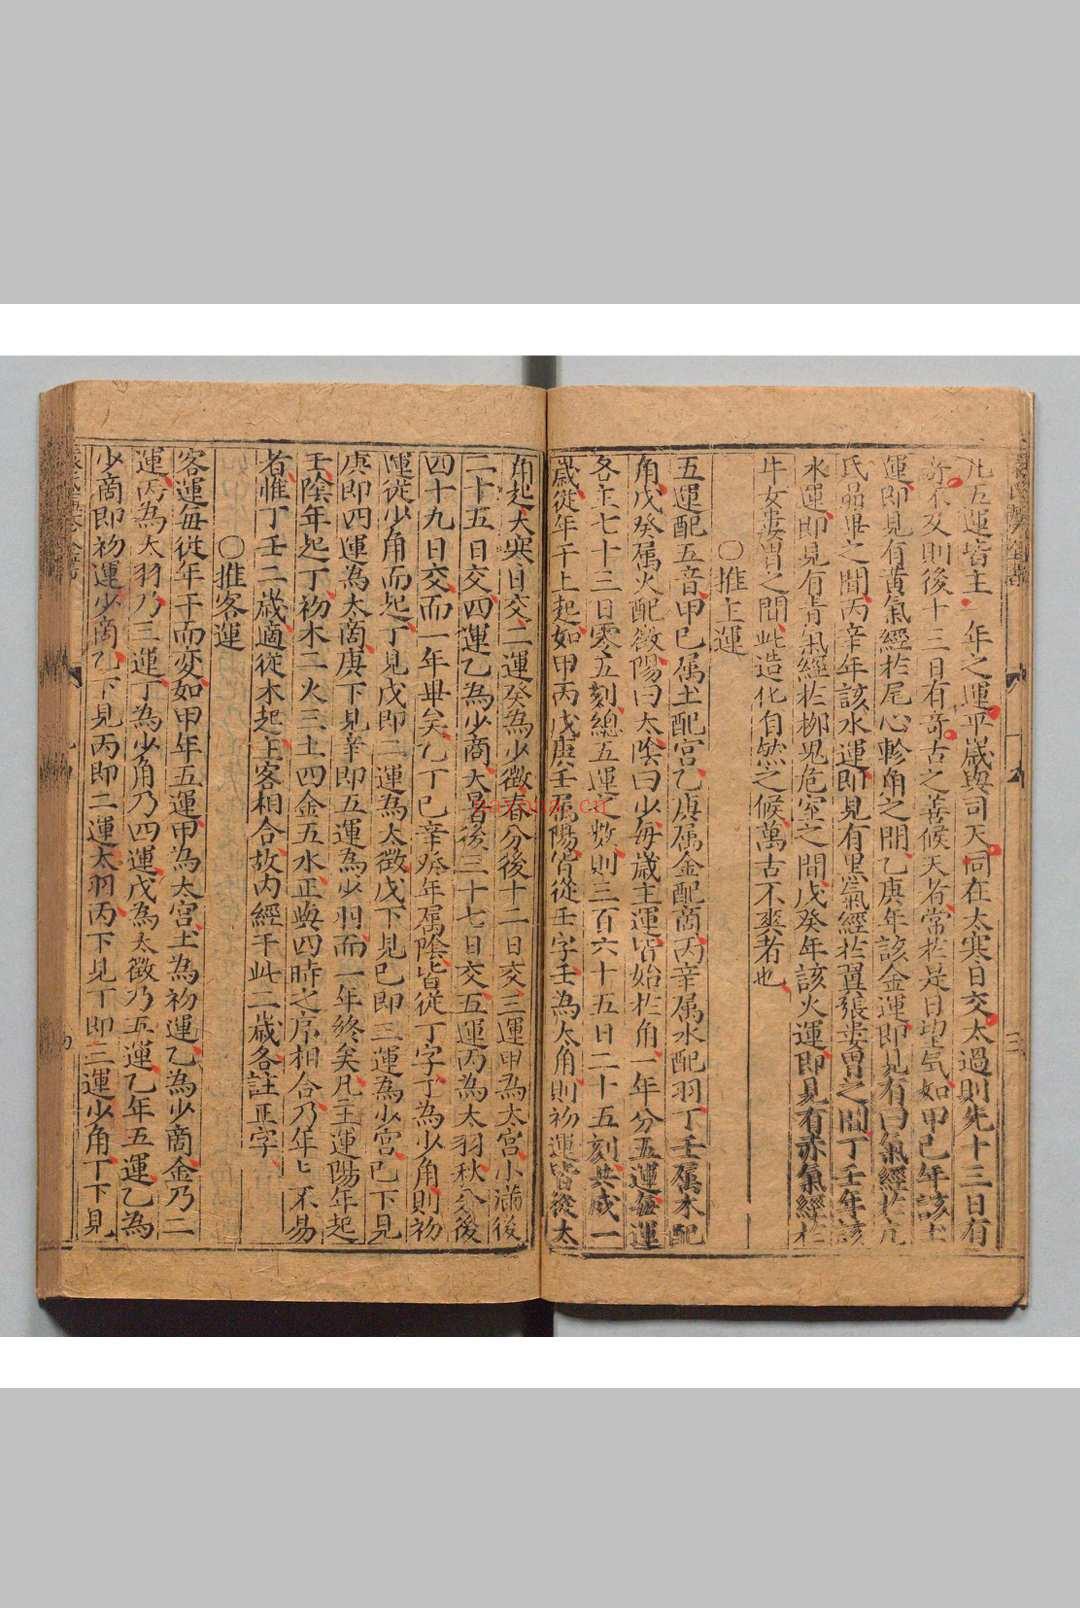 凡五運皆主一年之運平歲與司天同在大寒日交太過則先十三日有
奇不及則後十三日有奇古之善候天者常於是日望氣如甲己年該土
運即見有黃氣經於尾心軫角之間乙庚年該金運即見有白氣經於亢
氐昴畢之間丙辛年該水運即見有黑氣經於翼張婁胃之間丁壬年該
水運即見有青氣經於栁鬼危室之間戊癸年該火運即見有赤氣經於
牛女婁胃之間此造化自然之候萬古不爽者也
○推主運
五運配五音甲己属土配宮乙庚属金配商丙辛属水配羽丁壬属木配
角戊癸属火配徵陽曰太陰曰少每歲主運皆始於角一年分五運每運
各主七十三日零五刻總五運之數則三百六十五日二十五刻共成一
歲從年干上起如甲丙戊庚壬属陽皆從壬字壬為太角則初運皆從太
角起大寒日交二運癸為少徵春分後十二日交三運甲為太宮小滿後
二十五日交四運乙為少商大暑後三十七日交五運丙為太羽秋分後
四十九日交而一年畢矣乙丁己辛癸年属陰皆從丁字丁為少角則初
運從少角而起丁見戊即二運為太徵戊下見己即三運為少宮己下見
庚即四運為太商庚下見辛即五運為少羽而一年終矣凡主運陽年起
壬陰年起丁初木二火三土四金五水正與四時之序相合乃年年不易
者惟丁壬二歲適從木起主客相合故內經于此二歲各註正字
○推客運
客運每從年干而变如甲年五運甲為太宮土為初運乙為少商金乃二
運丙為太羽乃三運丁為少角乃四運戊為太徵乃五運乙年五運乙為
少商即初運少商乙下見丙即二運太羽丙下見丁即三運少角丁下見